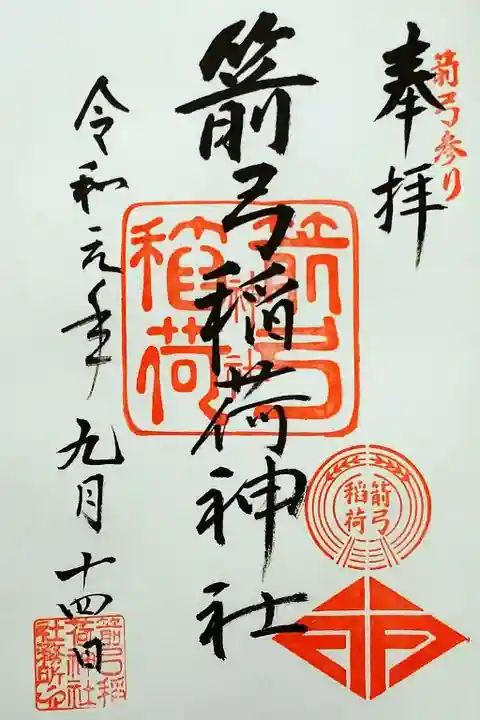 箭弓参り
奉拝
箭弓稲荷神社
令和元年九月十四日
箭弓
稲荷
神社
箭弓
稲荷
箭弓稲
荷神社
社務所